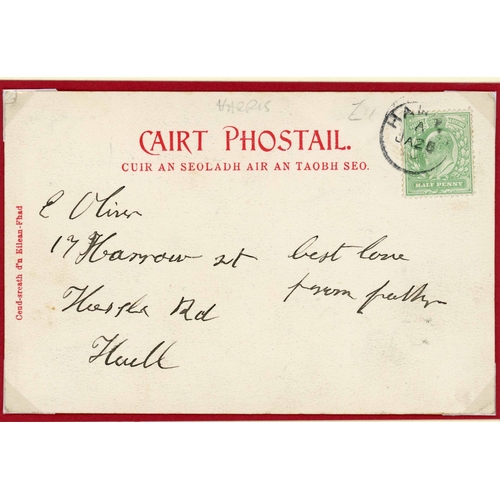 HARRIS
CAIRT PHOSTAIL.
CUIR AN SEOLADH AIR AN TAOBH SEO.
HAW
A
JA 26
HALF PENNY
Ceud-sreath d'n Eilean-Fhad
E Oliver
17 Harrow st
Hessle Rd
Hull
best love
from father